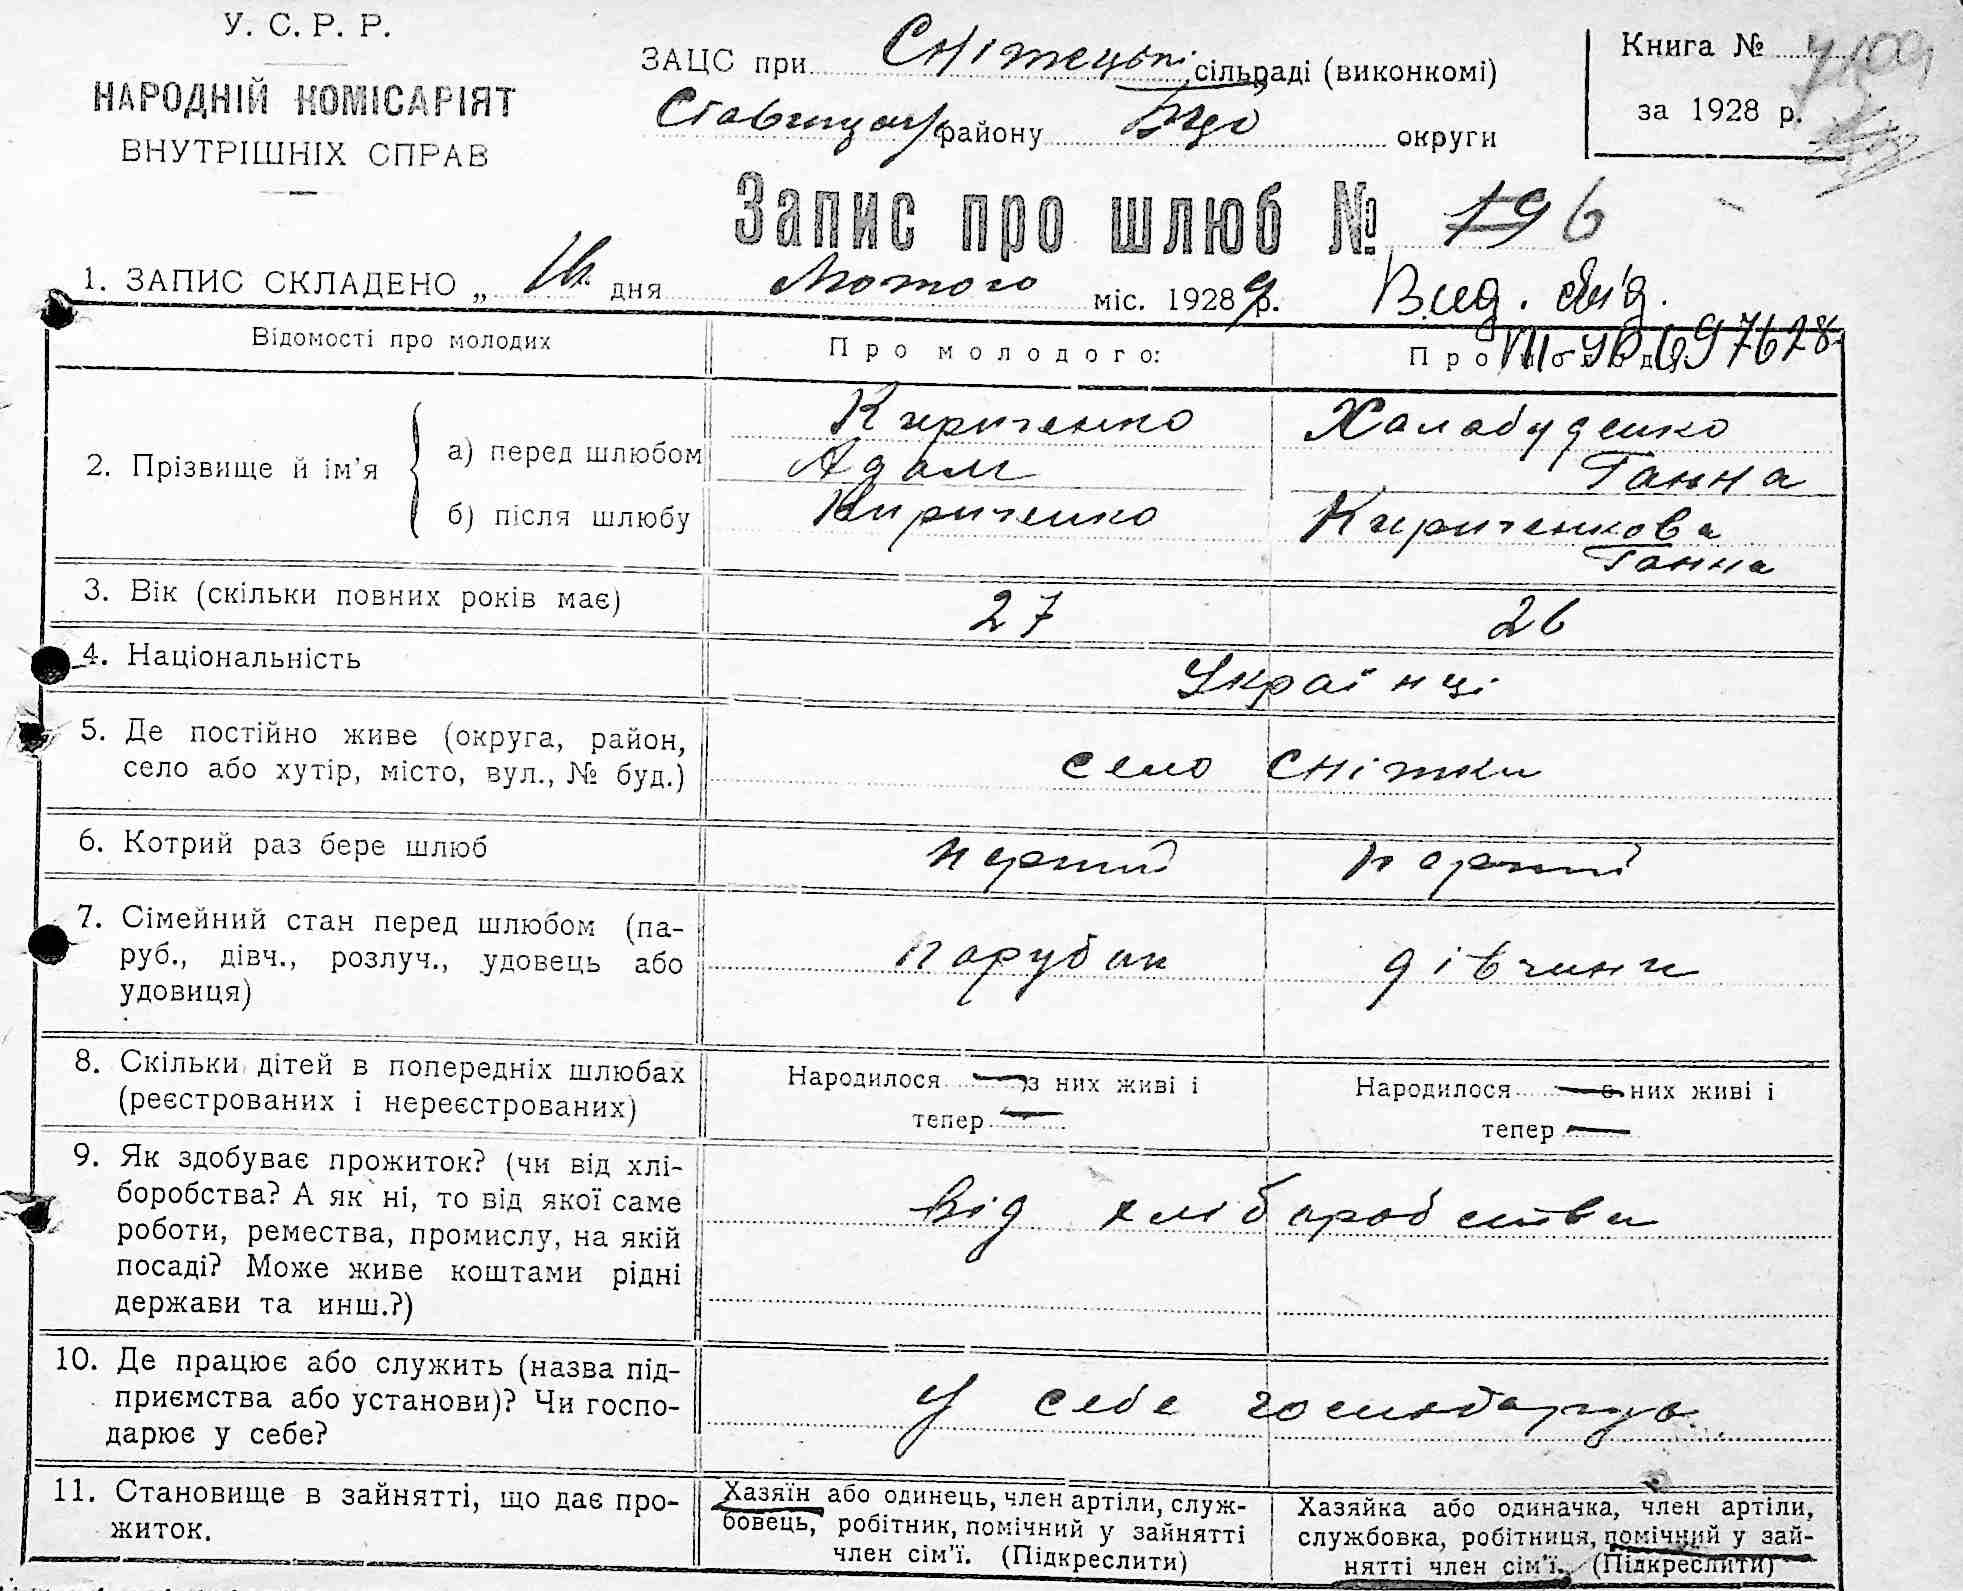 У. С. Р. Р.
НАРОДНІЙ КОМІСАРІЯТ
ВНУТРІШНІХ СПРАВ
ЗАЦС при Сніжецькі сільраді (виконкомі)
району округи
Книга №
за 1928 р.
Запис про шлюб № 19 6
1. ЗАПИС СКЛАДЕНО „ 16 дня Лютого міс. 1928 9 р.
Вид. свід.
697628
Відомості про молодих
Про молодого:
2. Прізвище й ім’я
а) перед шлюбом
Кириченко
Адам
Халабуденко
Ганна
б) після шлюбу
Кириченко
Кириченкова
Ганна
3. Вік (скільки повних років має)
27
26
4. Національність
Українці
5. Де постійно живе (округа, район,
село або хутір, місто, вул., № буд.)
село Сніжки
6. Котрий раз бере шлюб
перший
перший
7. Сімейний стан перед шлюбом (па-
руб., дівч., розлуч., удовець або
удовиця)
парубок
дівчина
8. Скільки дітей в попередніх шлюбах
(реєстрованих і нереєстрованих)
Народилося — з них живі і
тепер —
Народилося — з них живі і
тепер —
9. Як здобуває прожиток? (чи від хлі-
боробства? А як ні, то від якої саме
роботи, ремества, промислу, на якій
посаді? Може живе коштами рідні
держави та инш.?)
від хліборобства
10. Де працює або служить (назва під-
приємства або установи)? Чи госпо-
дарює у себе?
У себе
11. Становище в зайнятті, що дає про-
житок.
Хазяїн або одинець, член артіли, служ-
бовець, робітник, помічний у зайнятті
член сім’ї. (Підкреслити)
Хазяйка або одиначка, член артіли,
службовка, робітниця, помічний у зай-
нятті член сім’ї. (Підкреслити)